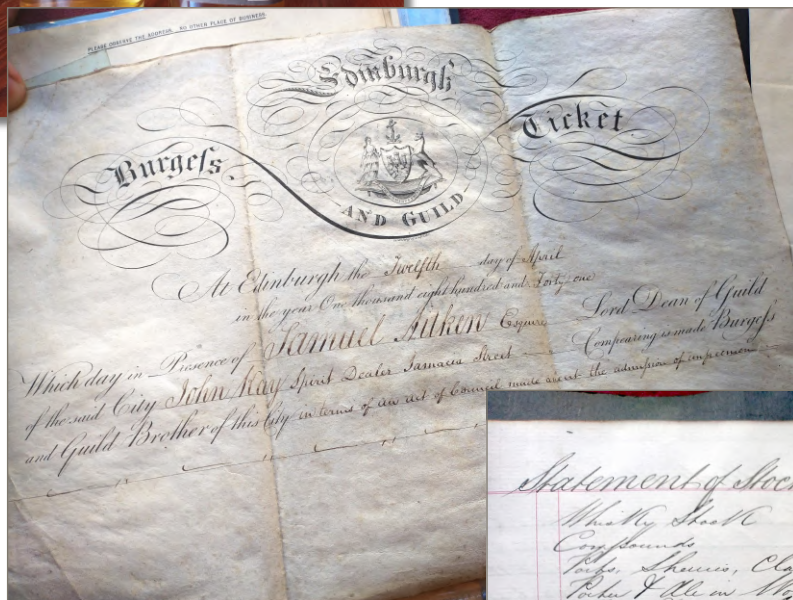 PLEASE OBSERVE THE ADDRESS. NO OTHER PLACE OF BUSINESS
Edinburgh
Burgeſs. Ticket.
AND GUILD
At Edinburgh the Twelfth day of April
in the year One thousand eight hundred and Forty one
Which day in Presence of Samuel Aitken Esquire Lord Dean of Guild
of the said City John Kay Spirit Dealer Jamaica Street Compearing is made Burgeſs
and Guild Brother of this City in terms of an Act of Council made anent the admission of
Statement of Stoc
Whisky Stock
Compounds
Ports, Sherries, Cla
Porter & Ale in Wo